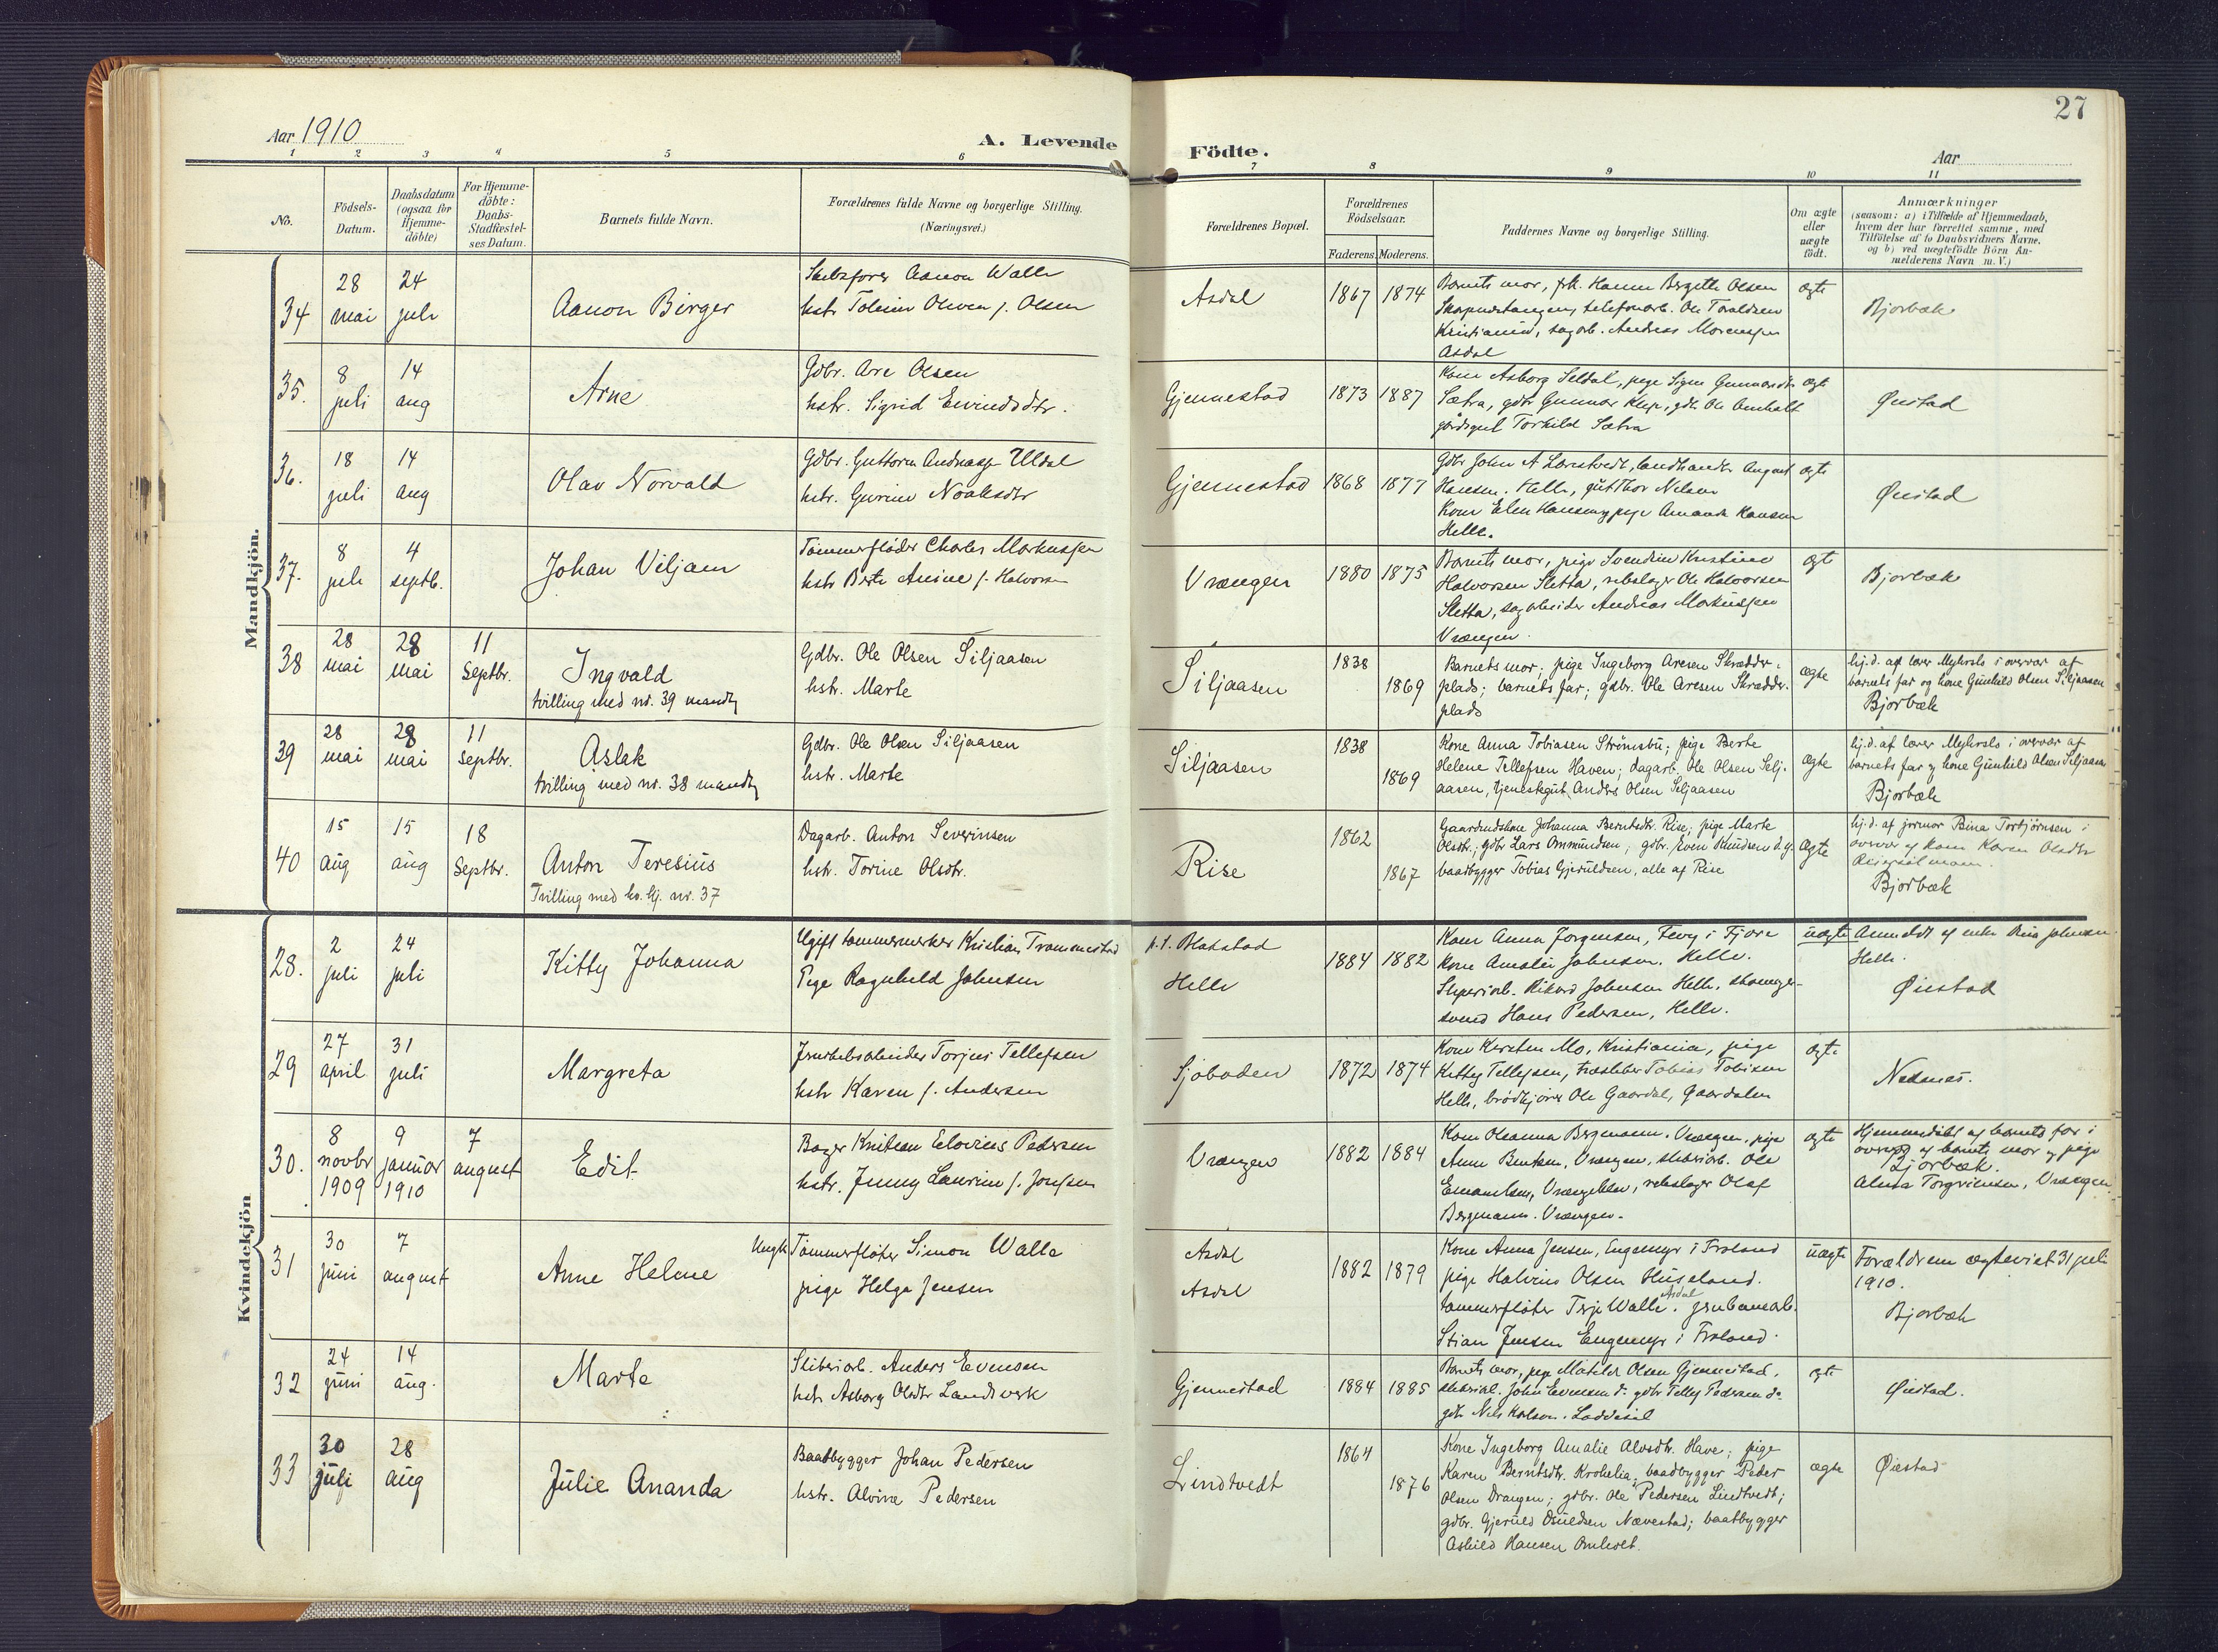 27
Aar 1910
A. Levende
Födte.
Aar
1 2 3 4 5 6 7 8 9 10 11
No.
Födsels-Datum.
Daabsdatum (ogsaa for Hjemme-döbte)
For Hjemme-döbte: Daabs-Stadfæstel-ses Datum.
Barnets fulde Navn.
Forældrenes fulde Navne og borgerlige Stilling.
(Næringsvei.)
Forældrenes Bopæl.
Forældrenes Födselsaar.
Faderens. Moderens.
Faddernes Navne og borgerlige Stilling.
Om ægte eller uægte födt.
Anmærkninger
(saasom: a) i Tilfælde af Hjemmedaab,
hvem der har forrettet samme, med
Tilföielse af to Daabsvidners Navne,
og b) ved uegtefödte Börn An-
melderens Navn m. V.)
Mandkjön.
34
28 mai
24 juli
Aanon Birger
Aanon Walle
hstr.
f. Olsen
Asdal
1867 1874
Barnets mor, frk. Hanna Bergette Olsen
telefonarb. Ole Toraldsen
Kristiania, sagarb. Andreas
Asdal
ægte
Bjorbæk
35.
8 juli
14 aug
Arne
Gdbr. Are Olsen
hstr. Sigrid Eivindsdtr.
Gjennestad
1873 1887
Kone Asborg Seldal, pige Signe
Sætra, gdbr Gunnar
Torkild Sætra
ægte
Øiestad
36.
18 juli
14 aug
Olav Norvald
Gdbr. Guttorm Andreasf Uldal
hstr. Gurine Noaksdtr
Gjennestad
1868 1877
Gdbr John A Larstvedt, landhandl. August
Hansen. Helle, gut Thor Nilsen
Kone Elen Hansen, pige Amanda Hansen
Helle.
ægte
Øiestad
37.
8 juli
4 septb.
Johan Viljam
Tömmerfløder Charles Markussen
hstr Berte Anine f. Halvorsen
Vrængen
1880 1875
Barnets mor, pige Svendine Kristine
Halvorsen Sletta, rebslager Ole Halvorsen
Sletta, sagarbeider Andreas Markussen
Vrængen
ægte
Bjorbæk
38
28 mai
28 mai
11 Septbr.
Ingvald
tvilling med nr. 39 mandkj
Gdbr. Ole Olsen Siljaasen
hstr. Marte
Siljaasen
1838
1869
Barnets mor; pige Ingeborg Aresen Skrædder-
plads; barnets far; gdbr. Ole Aresen Skrædder-
plads
ægte
hj.d. af lærer Myhrslo i overvær af
barnets far og kone Gunhild Olsen Siljaasen
Bjorbæk
39
28 mai
28 mai
11 Septbr.
Aslak
tvilling med nr. 38 mandkj
Gdbr. Ole Olsen Siljaasen
hstr. Marte
Siljaasen
1838
1869
Kone Anna Tobiasen Strömsbu; pige Berte
Helene Tellefsen Haven; dagarb. Ole Olsen Silj-
aasen, tjenestegut, Anders Olsen Siljaasen
ægte
hj.d. af lærer Myhrslo i overvær af
barnets far og kone Gunhild Olsen Siljaasen
Bjorbæk
40
15 aug
15 aug
18 Septbr.
Anton Teresius
Tvilling med kv. kj. nr. 37
Dagarb. Anton Severinsen
hstr. Torine Olsdtr.
Rise
1862
1867
Gaardmdskone Johanna Berntsdtr. Rise; pige Marte
Olsdtr.; gdbr Lars Ommundsen; gdbr. Even Knudsen og
baadbygger Tobias Gjeruldsen, alle af Rise
ægte
hj.d. af jormor Bina Torbjörnsen i
overvær af kone Karen Olsdtr
Bjorbæk
Kvindekjön
28.
2 juli
24 juli
Kitty Johanna
Ugift tømmermerker Kristian Trommestad
Pige Ragnhild Johnsen
p.t. Blakstad
Helle
1884 1882
Kone Anna Jorgensen, i Fjære
Kone Amalie Johnsen. Helle.
Sliperiarb. Rikard Johnsen Helle,
svend Hans Pedersen, Helle.
uægte
Anmeldt af enke Johnsen
Helle.
Øiestad
29
27 april
31 juli
Margreta
Torjus Tellefsen
hstr Karen f. Andersen
Sjøboden
1872 1874
Kone Kirsten Mo, Kristiania, pige
Kitty Tellefsen, Tobias Tobiasen
Helle, brödkjører Ole Gaardal, Gaardalen
ægte
Nedenes.
30.
8 novbr 1909
9 januar 1910
7 august
Edit
Bager Kristian Elovius Pedersen
hstr. Jenny Laurine f. Josefsen
Vrængen
1882 1884
Kone Oleanna Bergmann. Vrængen, pige
Anne Bentsen, Vrængen, sliberiarb. Ole
Emanuelsen, Vrængen, rebslager Olaf
Bergmann. Vrængen.
ægte
Hjemmedøbt af barnets far i
overvær af barnets mor og pige
Bjorbæk.
Alma Torgrimsen, Vrængen
31
30 juni
7 august
Anne Helene
Ungk Tømmerfløter Simon Walle
pige Helga Jensen
Asdal
Asdal
1882 1879
Kone Anna Jensen, Engemyr i Froland
pige Halvine Olsen Huseland.
tømmerfløter Terje Walle. Asdal jernbanearb.
Stian Jensen Engemyr i Froland.
uægte
Forældrene ægteviet 31 juli
1910.
Bjorbæk
32
24 juni
14 aug.
Marte
Sliberiarb. Anders Evensen
hstr Asborg Olsdtr Landsverk
Gjennestad
1884 1885
Barnets mor, pige Matilde Olsen Gjennestad,
sliberiarb. John Evensen do gdbr Tellef Pedersen do
gdbr Nils Karlsen. Loddesöl
ægte
Øiestad.
33
30 juli
28 aug
Julie Ananda
Baadbygger Johan Pedersen
hstr. Alvine Pedersen
Lindtvedt
1864
1876
Kone Ingeborg Amalie Alvsdtr. Have; pige
Karen Berntsdtr. Krohelia; baadbygger Peder
Olsen Drangen; gdbr. Ole Pedersen Lindtvedt;
gdbr. Gjeruld Osuldsen Nævestad; baatbygger
Askild Hansen Omholt.
ægte
Øiestad